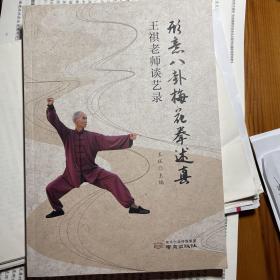 形意八卦梅花拳述真
王祺老师谈艺录
王祺 主编